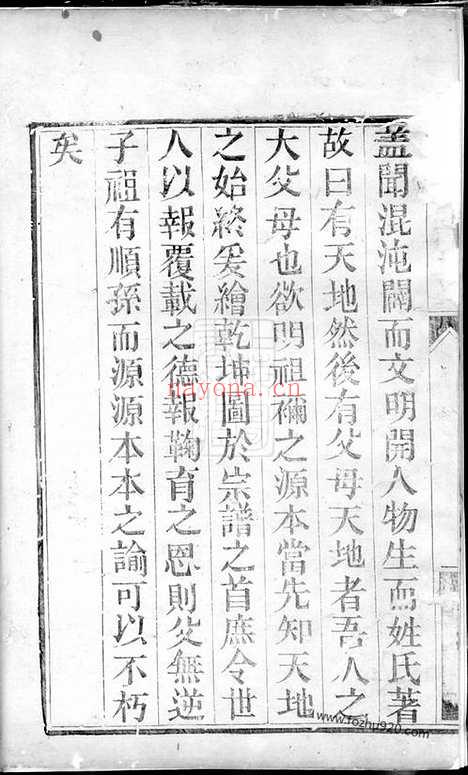 盖聞混沌闢而文明開人物生而姓氏著
故曰有天地然後有父母天地者吾人之
大父母也欲明祖禰之源本當先知天地
之始終爰繪乾坤圖於宗譜之首庶令世
人以報覆載之德報鞠育之恩則父無逆
子祖有順孫而源源本本之論可以不朽
矣
nayona.cn
www.fozhu920.com